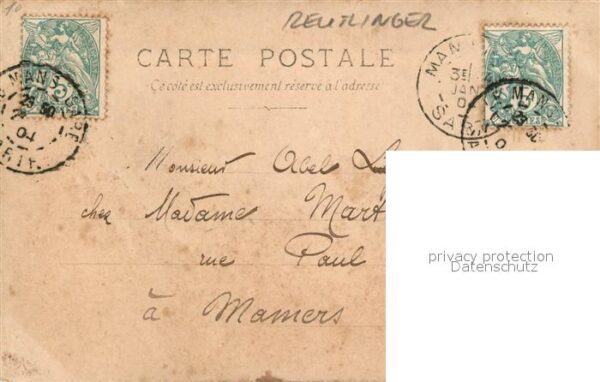 REUTLINGER
CARTE POSTALE
Ce côté est exclusivement réservé à l'adresse
Monsieur Abel
chez Madame Mart
rue Paul
à Mamers
privacy protection
Datenschutz